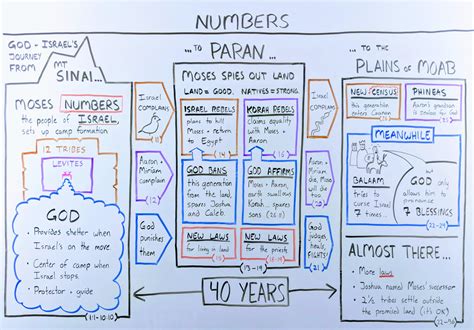 NUMBERS
GOD - ISRAEL'S
JOURNEY
FROM
MT
SINAI...
MOSES NUMBERS
the people of ISRAEL,
sets up camp formation
12 TRIBES
LEVITES
GOD
• Provides shelter when
Israel's on the move.
• Center of camp when
Israel stops.
• Protector + guide
(1:1-10:10)
Israel
complains
(11)
Aaron +
Miriam
complain
(12)
God
punishes
them
...TO
PARAN...
MOSES SPIES OUT LAND
LAND = GOOD. NATIVES = STRONG.
ISRAEL REBELS
plans to kill
Moses + return
to Egypt
(14)
KORAH REBELS
claims equality
with Moses +
Aaron
(16)
GOD BANS
this generation
from the land,
spares Joshua
and Caleb.
GOD AFFIRMS
Moses + Aaron,
swallows
Korah, spares
NEW LAWS
for living in land
(15)
NEW LAWS
for the priests
(18-19)
40 YEARS
Israel
complains
Aaron +
Moses
die
God
judges,
heals,
(21)
...TO THE
PLAINS OF MOAB
NEW CENSUS
this generation
enters Canaan
PHINEAS
Aaron's grandson
is zealous for God
MEANWHILE
BALAAM
tries to
curse Israel
7 times...
GOD only
allows him to
pronounce
7 BLESSINGS
ALMOST THERE...
• More laws
• Joshua named Moses' successor
• 2½ tribes settle outside the
promised land (it's OK)